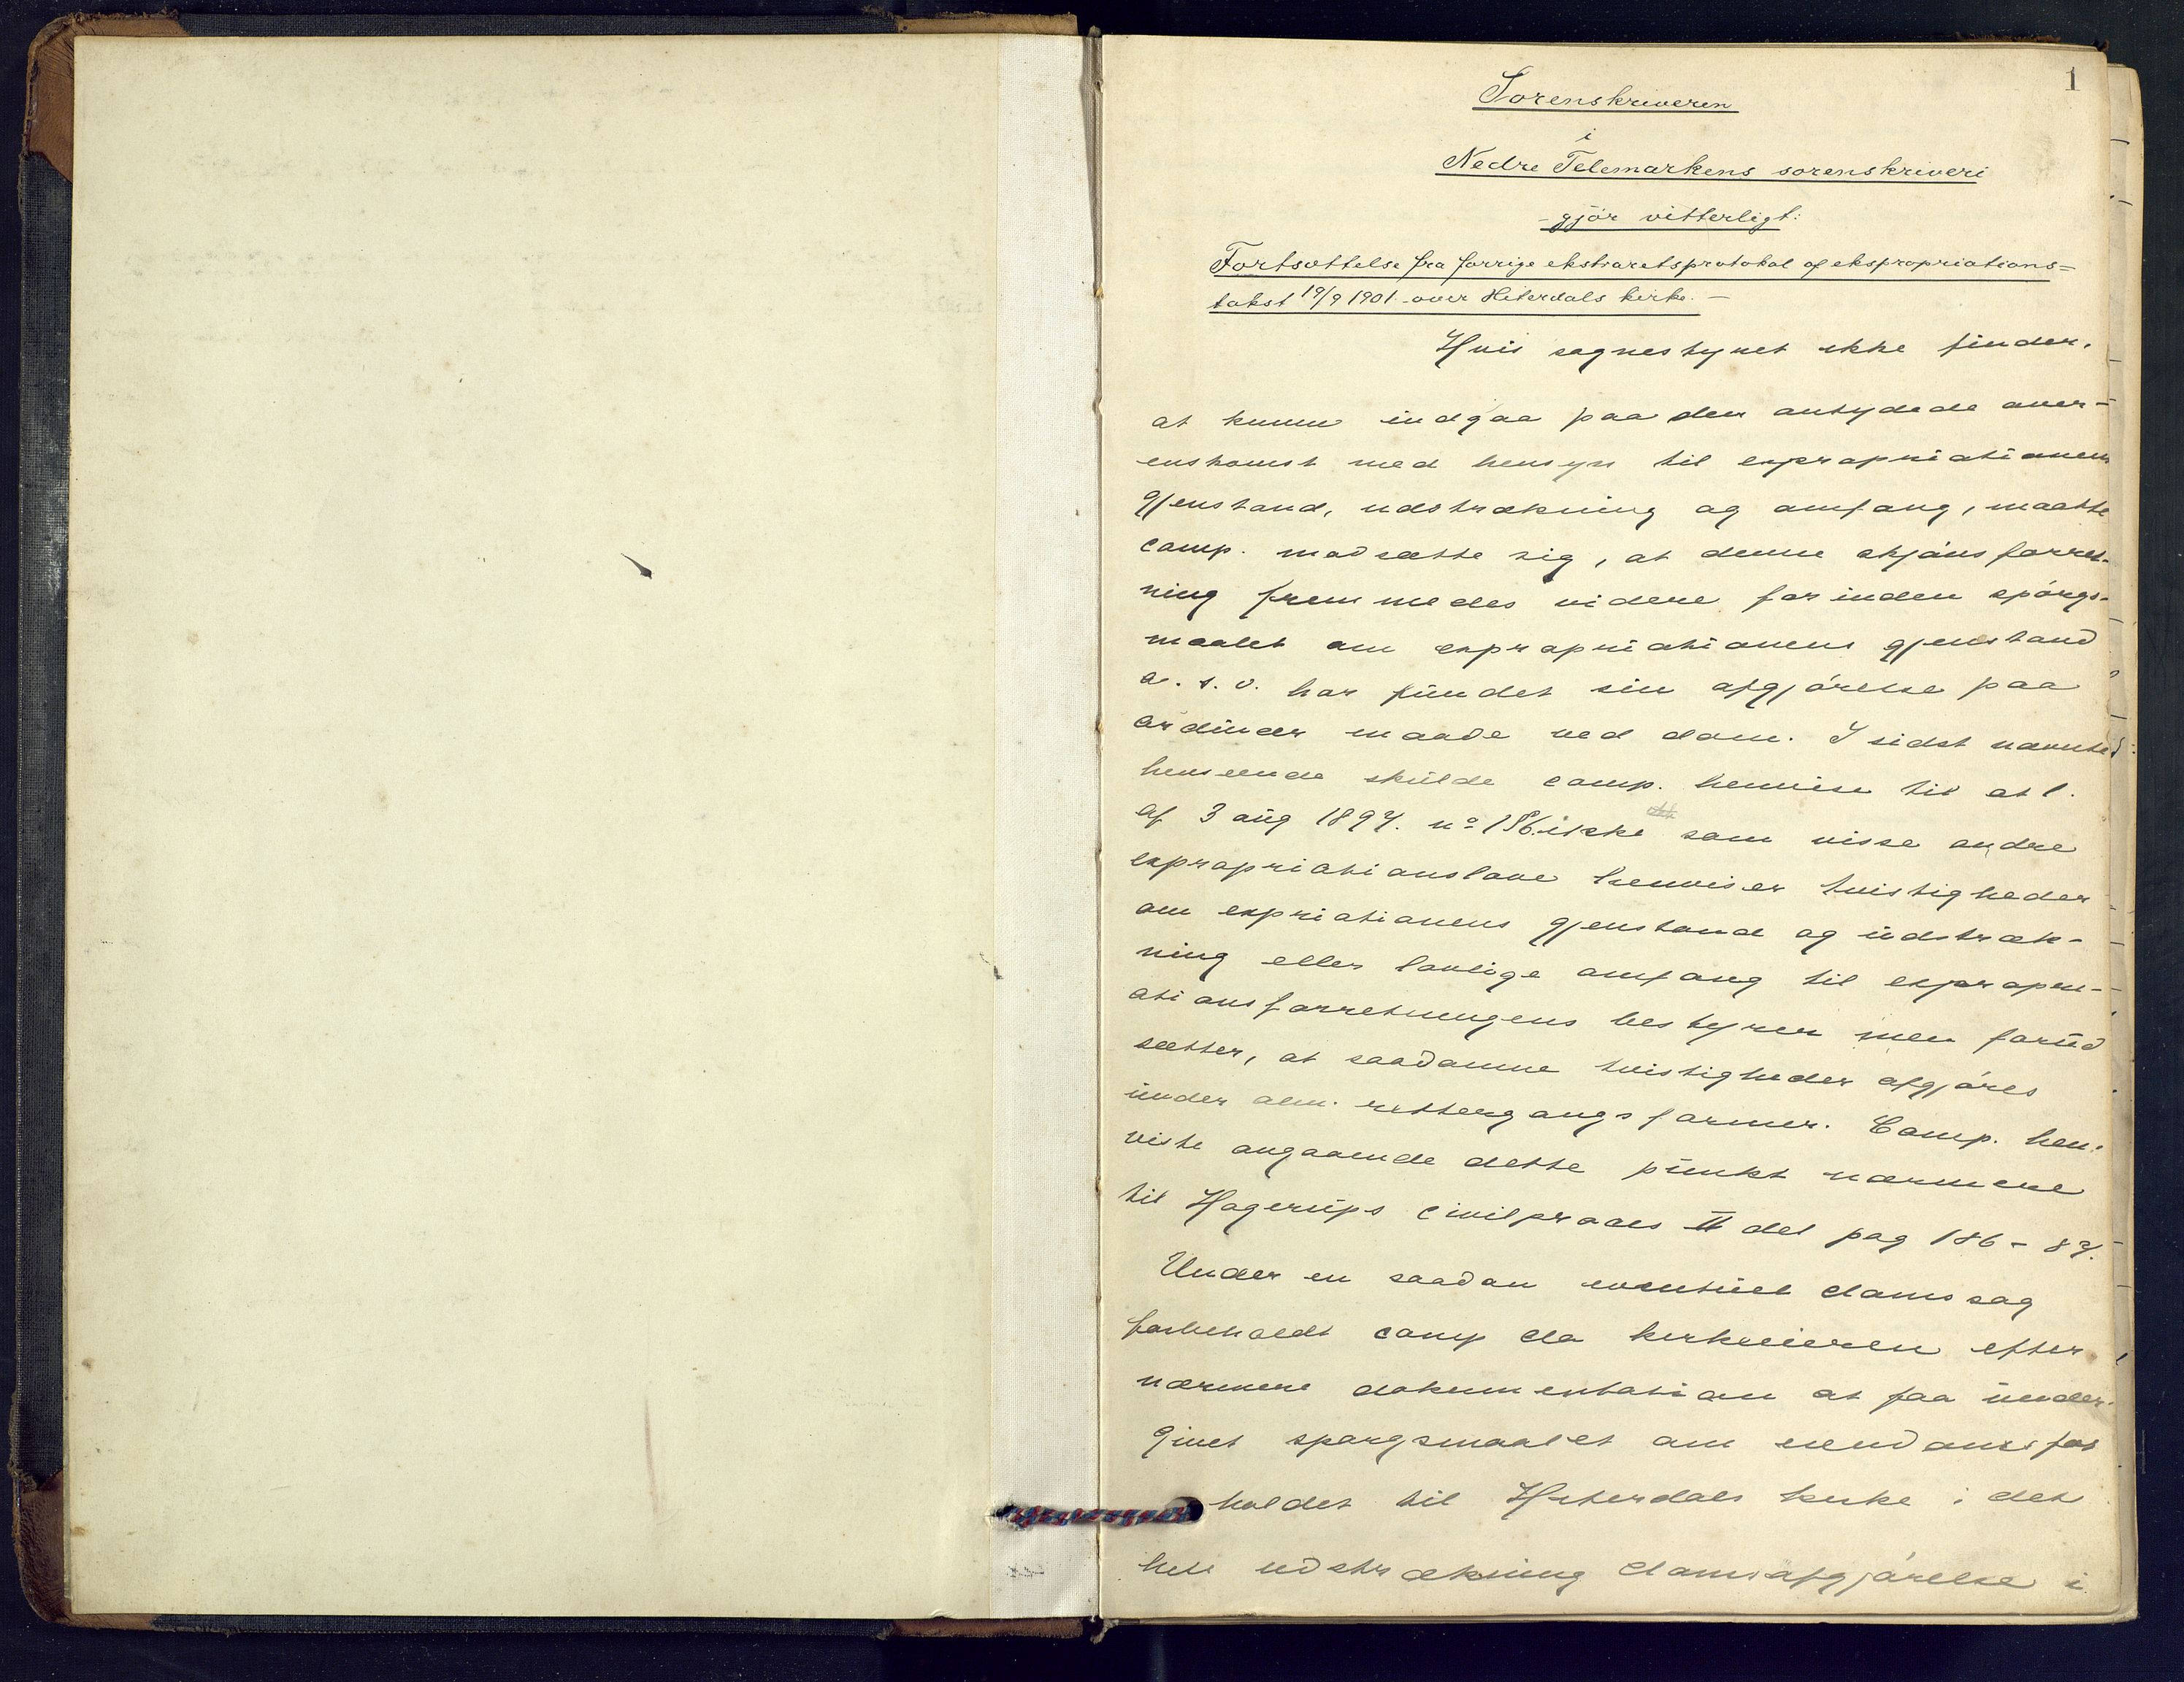 1
Sorenskriveren
i
Nedre Telemarkens sorenskriveri
- gjør vitterligt:
Fortsættelse fra forrige ekstraretsprotokol af ekspropriations=
takst 19/9 1901 over Hiterdals kirke. —
Hvis sognestyret ikke finder,
at kunne indgaa paa den antydede over-
enskomst med hensyn til expropriationens
gjenstand, udstrækning og omfang, maatte
comp. modsætte sig, at denne skjønsforret-
ning fremmedes videre forinden spørgs-
maalet om expropriationens gjenstand
o. s. v. har fundet sin afgjørelse paa
ordinær maade ved dom. I sidst nævnte
henseende skulde comp. henvise til at l.
af 3 aug 1897. nº 186. ikke som visse andre
expropriationslove henviser tvistigheder
om expriationens gjenstand og udstræk-
ning eller lovlige omfang til expropri-
ationsforretningens bestyrer men forud
sætter, at saadanne tvistigheder afgjøres
under alm. rettergangsformer. Comp. hen-
viste angaaende dette punkt nærmere
til Hagerups civilproces II del pag 186 - 87.
Under en saadan eventuel domssag
forbeholdt comp da kirkeeieren efter
nærmere dokumentation at faa under-
givet spørgsmaalet om eiendomsfor
holdet til Hiterdals kirke i det
hele udstrækning domsafgjørelse i